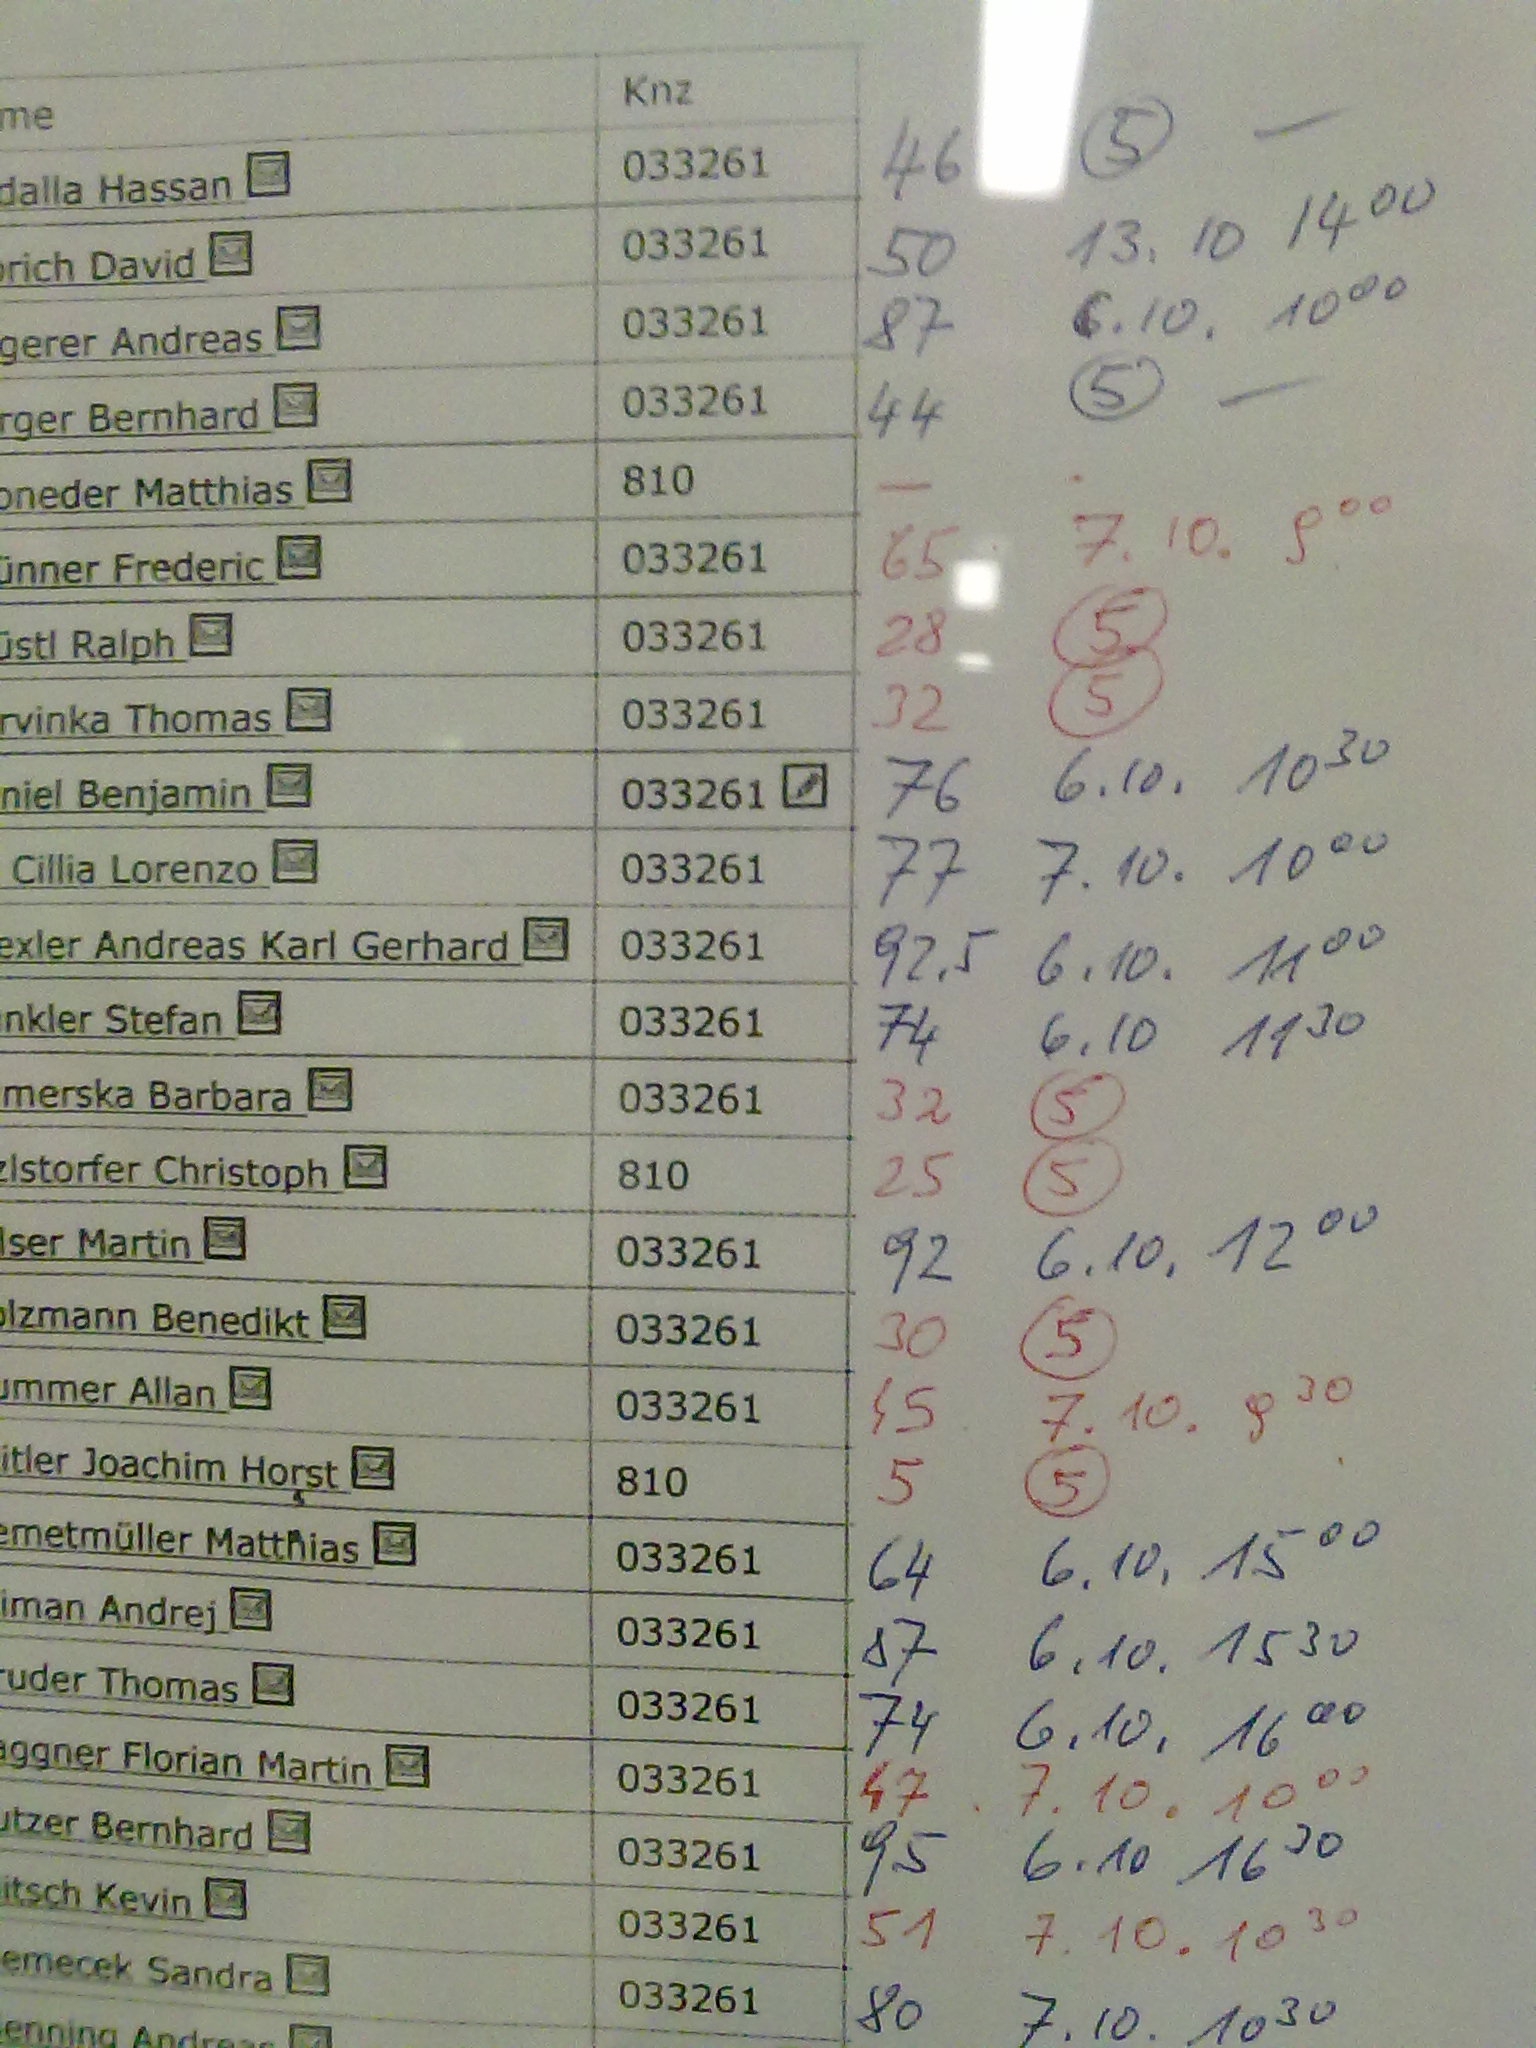 me Knz
dalla Hassan 033261 46 5 —
rich David 033261 50 13. 10 14 00
gerer Andreas 033261 87 6.10. 10 00
rger Bernhard 033261 44 5 —
oneder Matthias 810 —
ünner Frederic 033261 65 7. 10. 9 00
üstl Ralph 033261 28 5
rvinka Thomas 033261 32 5
niel Benjamin 033261 76 6.10. 10 30
Cillia Lorenzo 033261 77 7.10. 10 00
exler Andreas Karl Gerhard 033261 92.5 6.10. 11 00
nkler Stefan 033261 74 6.10 11 30
merska Barbara 033261 32 5
zlstorfer Christoph 810 25 5
lser Martin 033261 92 6.10. 12 00
olzmann Benedikt 033261 30 5
ummer Allan 033261 45 7.10. 9 30
itler Joachim Horst 810 5 5
emetmüller Matthias 033261 64 6.10. 15 00
iman Andrej 033261 87 6.10. 15 30
ruder Thomas 033261 74 6.10. 16 00
aggner Florian Martin 033261 47 7.10. 10 00
utzer Bernhard 033261 95 6.10 16 30
itsch Kevin 033261 51 7.10. 10 30
emecek Sandra 033261 80 7.10. 10 30
enning Andreas